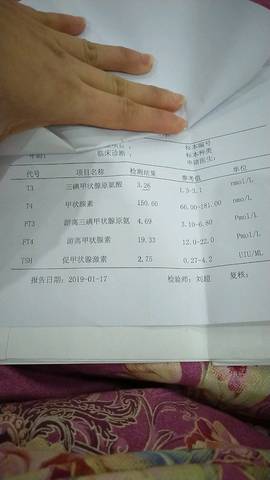 标本编号
临床诊断： 标本种类
申请医生：
代号 项目名称 检测结果 参考值 单位
T3 三碘甲状腺原氨酸 3.26 1.3-3.1 nmol/L
T4 甲状腺素 150.60 66.00-181.00 nmol/L
FT3 游离三碘甲状腺原氨 4.69 3.10-6.80 Pmol/L
FT4 游离甲状腺素 19.33 12.0-22.0 Pmol/L
TSH 促甲状腺激素 2.75 0.27-4.2 UIU/ML
报告日期：2019-01-17 检验师：刘超 复核：